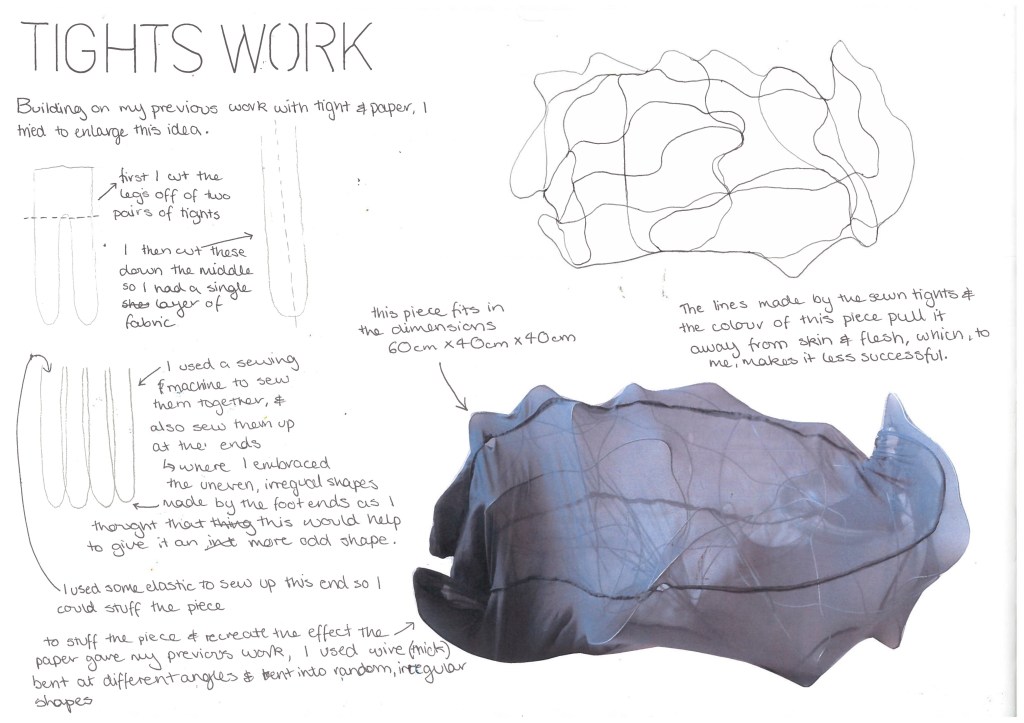 TIGHTS WORK
Building on my previous work with tight & paper, I
tried to enlarge this idea.
first I cut the
legs off of two
pairs of tights
I then cut these
down the middle
so I had a single
layer of
fabric
this piece fits in
the dimensions
60cm x 40cm x 40cm
The lines made by the sewn tights &
the colour of this piece pull it
away from skin & flesh, which, to
me, makes it less successful.
I used a sewing
machine to sew
them together, &
also sew them up
at the ends
↳ where I embraced
the uneven, irregual shapes
made by the foot ends as I
thought that thing this would help
to give it an just more odd shape.
I used some elastic to sew up this end so I
could stuff the piece
to stuff the piece & recreate the effect the
paper gave my previous work, I used wire (thick)
bent at different angles & bent into random, irregular
shapes